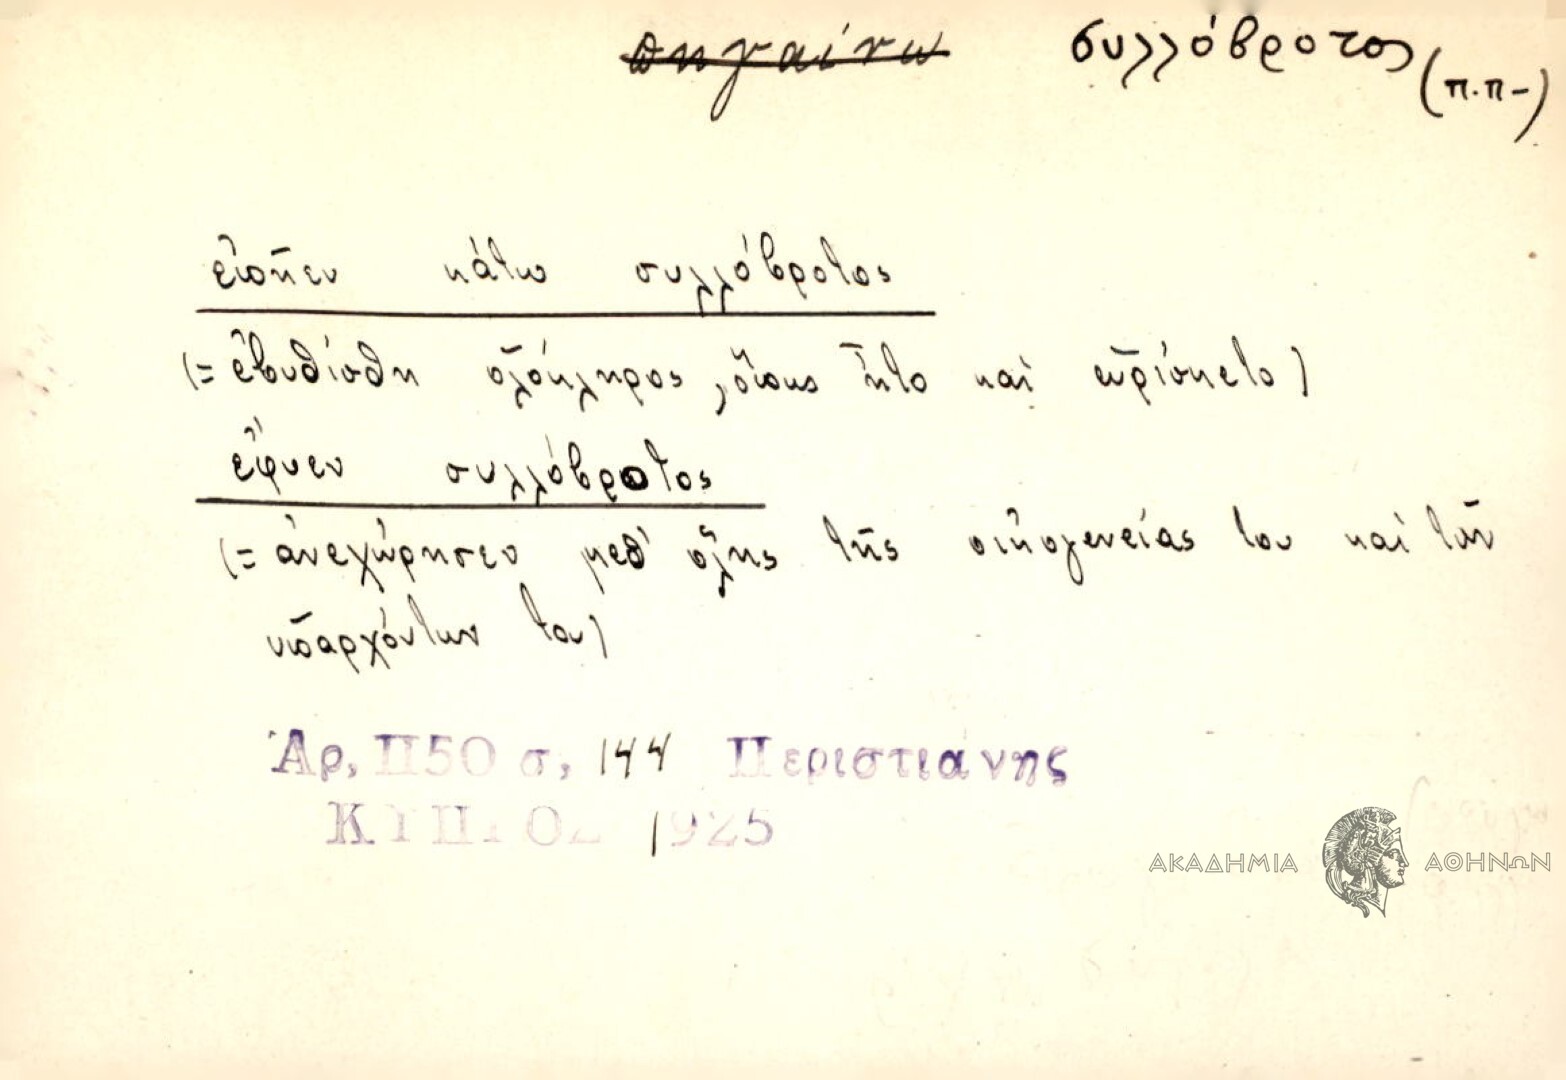 πηγαίνω συλλόβροτος (π.π-)
ἐπῆεν κάτω συλλόβροτος
(= ἐβυθίσθη ὁλόκληρος, ὅπως ἦτο καὶ εὑρίσκετο)
ἔφυεν συλλόβροτος
(= ἀνεχώρησεν μεθ' ὅλης τῆς οἰκογενείας του καὶ τῶν
ὑπαρχόντων του)
Ἀρ, Π50 σ, 144 Περιστιάνης
ΚΥΠΡΟΣ 1925
ΑΚΑΔΗΜΙΑ ΑΘΗΝΩΝ